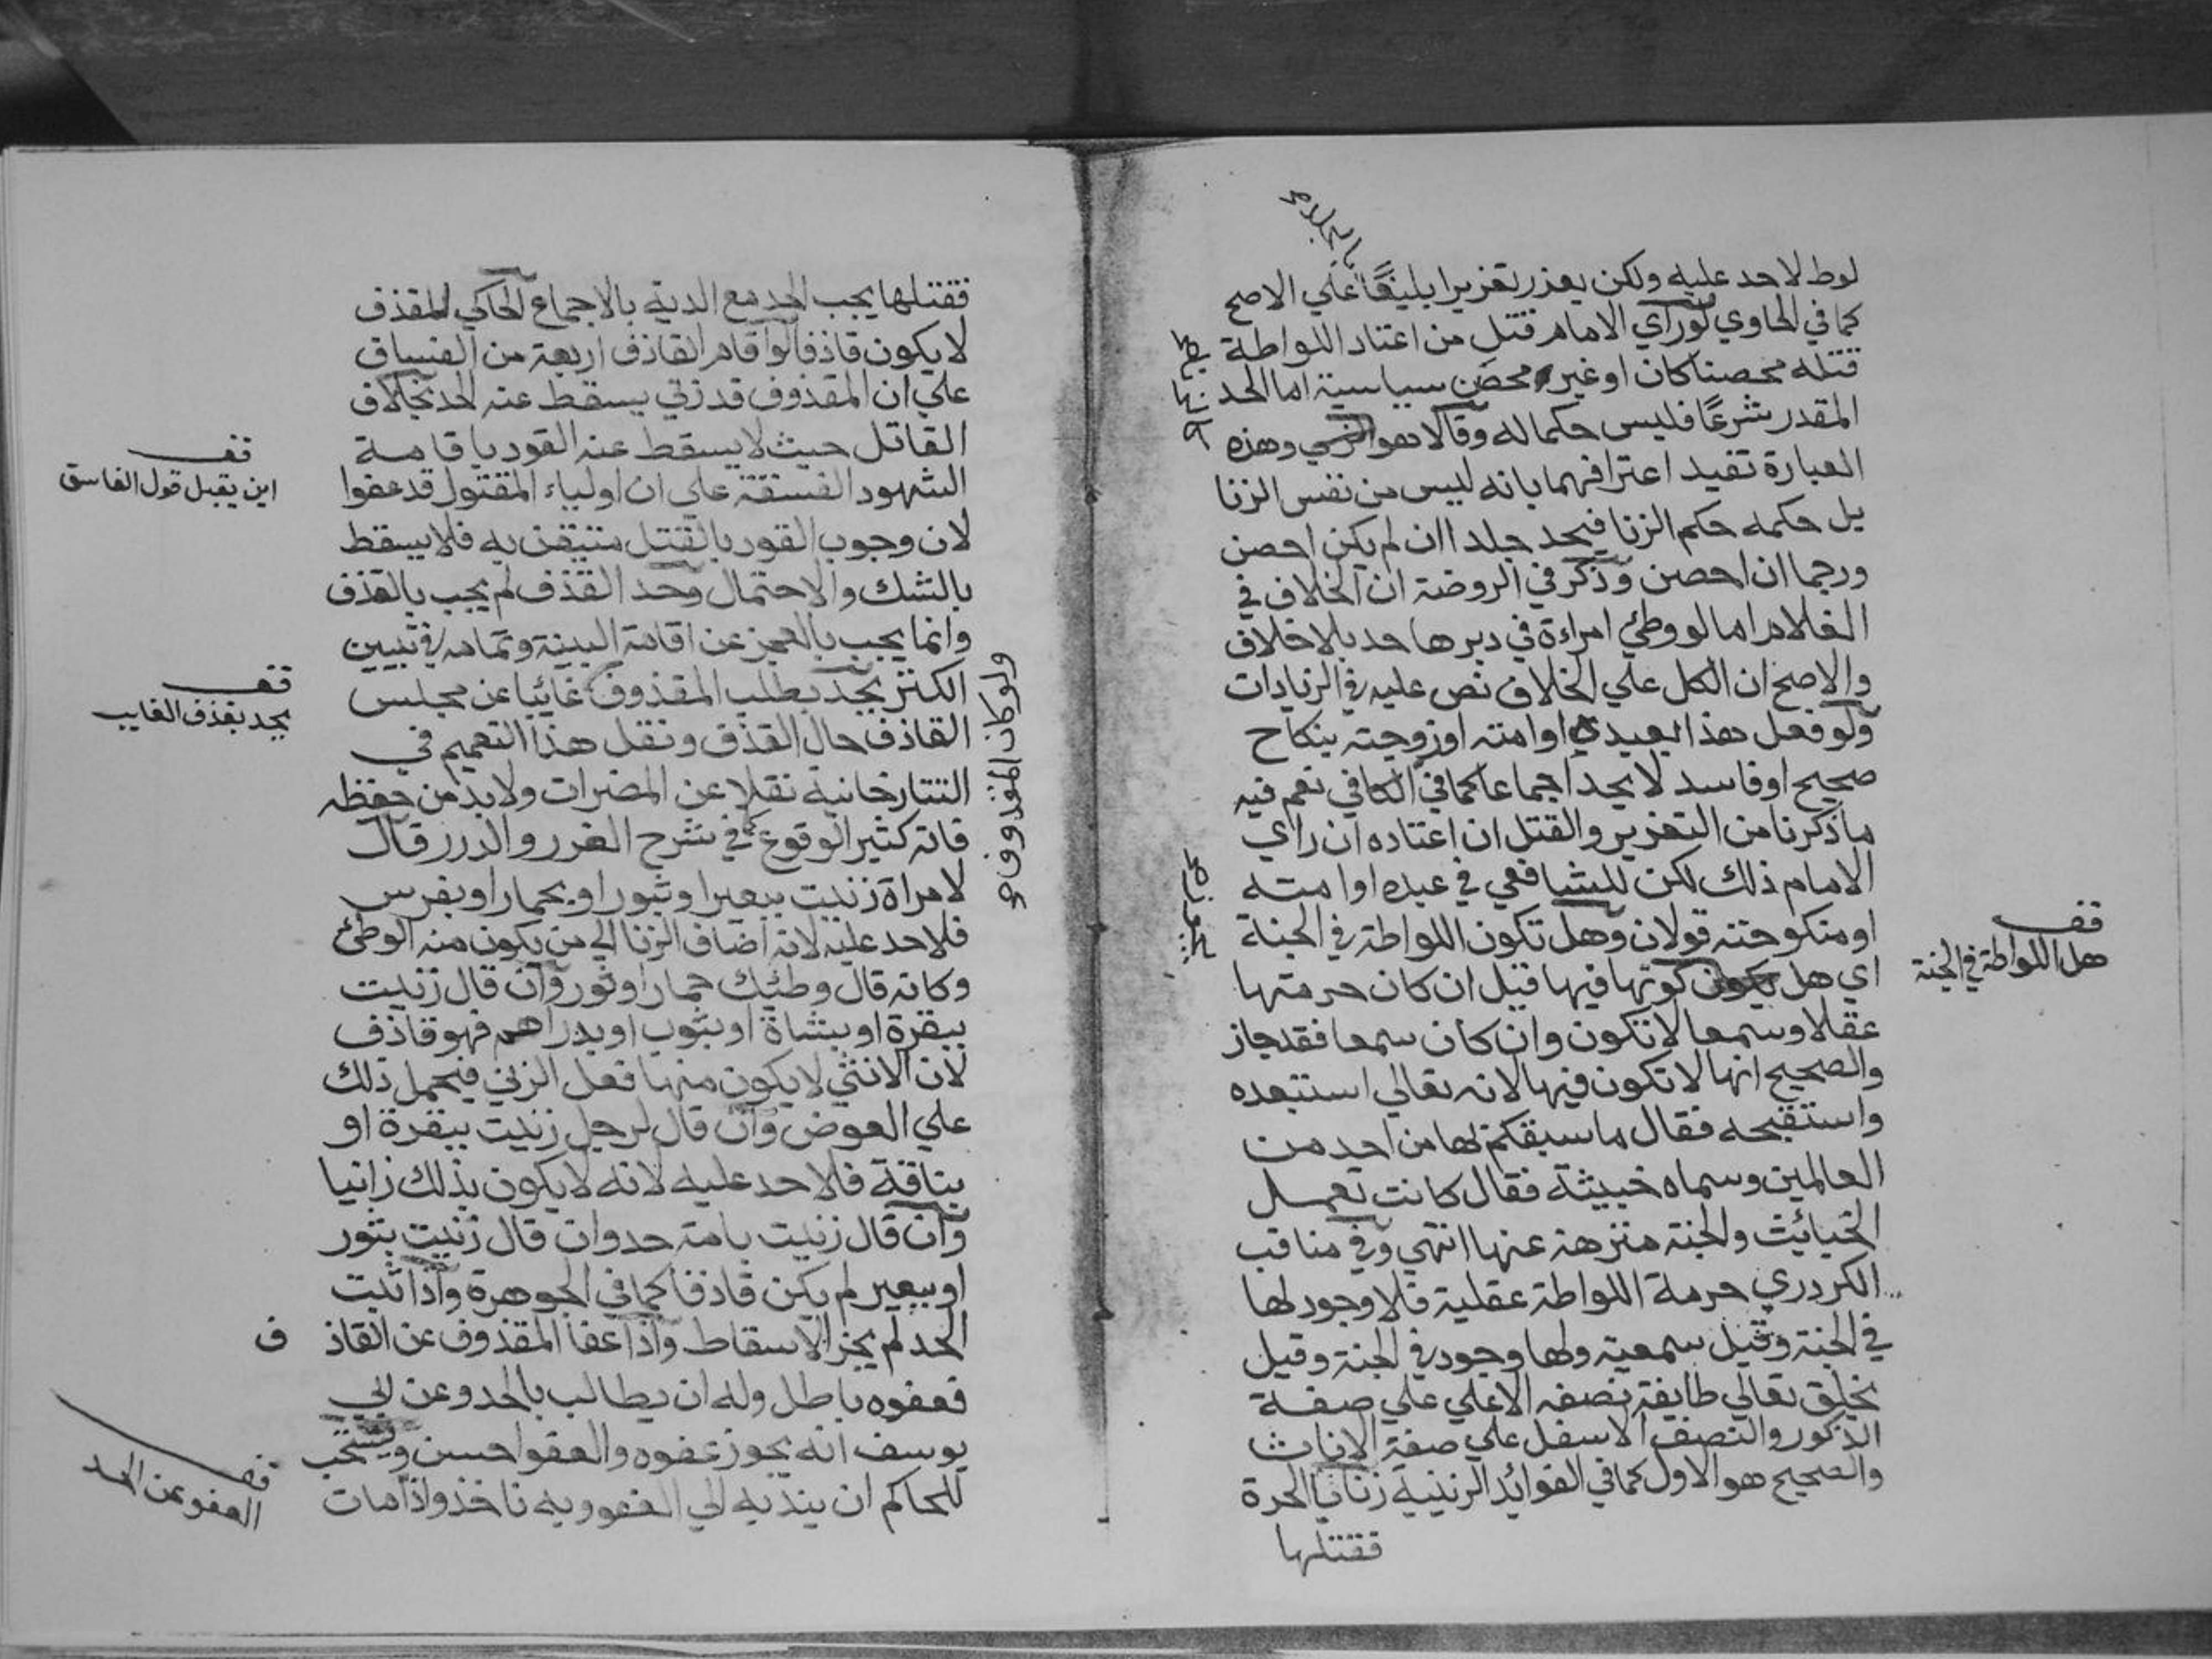 لوط لاحد عليه ولكن يعزر تعزيرا بليغًا علي الاصح
كما في الحاوي لوراي الامام قتل من اعتاد اللواطة
قتله محصنا كان او غير محصن سياسية اما الحد
المقدر شرعًا فليس حكما له وقالا هو وهذه
العبارة تفيد اعترافهما بانه ليس من نفس الزنا
بل حكمه حكم الزنا فيحد جلدا ان لم يكن احصن
ورجما ان احصن وذكر في الروضة ان الخلاف في
الغلام اما لو وطئ امراءة في دبرها حد بلا خلاف
والاصح ان الكل علي الخلاف نص عليه في الزيادات
ولو فعل هذا بعبده او امته او زوجته بنكاح
صحيح او فاسد لا يحد اجماعا كما في الكافي نعم فيه
ما ذكرنا من التعزير والقتل ان اعتاده ان راي
الامام ذلك لكن للشافعي في عبده او امته
او منكوحته قولان وهل تكون اللواطة في الجنة
اي هل كونها فيها قيل ان كان حرمتها
عقلا وسمعا لا تكون وان كان سمعا فقد جاز
والصحيح انها لا تكون فيها لانه تعالي استبعده
واستقبحه فقال ما سبقكم بها من احد من
العالمين وسماه خبيثة فقال كانت تعمل
الخبائيث والجنة منزهة عنها انتهي وفي مناقب
الكردري حرمة اللواطة عقلية فلا وجود لها
في الجنة وقيل سمعية ولها وجود في الجنة وقيل
يخلق تعالي طايفة نصفه الاعلي علي صفة
الذكور والنصف الاسفل علي صفة الاناث
والصحيح هو الاول كما في الفوائد الزينية زنا بالحرة
فقتلها
قف
هل اللواطة في الجنة
فقتلها يجب الحد مع الدية بالاجماع الحاكي للقذف
لا يكون قاذفا لو اقام القاذف اربعة من الفساق
علي ان المقذوف قد زني يسقط عنه الحد بخلاف
القاتل حيث لا يسقط عنه القود باقامة
الشهود الفسقة علي ان اولياء المقتول قد عفوا
لان وجوب القود بالقتل متيقن به فلا يسقط
بالشك والاحتمال وحد القذف لم يجب بالقذف
وانما يجب بالعجز عن اقامة البينة وتمامه في تبيين
الكنز يحد بطلب المقذوف غائبا عن مجلس
القاذف حال القذف ونقل هذا التعميم في
التتارخانية نقلا عن المضمرات ولا بد من حفظه
فانه كثير الوقوع كما في شرح الغرر والدرر قال
لامراة زنيت ببعير او بثور او بحمار او بفرس
فلا حد عليه لانه اضاف الزنا الي من يكون منه الوطئ
وكانه قال وطئيك حمار او ثور وان قال زنيت
ببقرة او بشاة او بثوب او بدراهم فهو قاذف
لان الانثي لا يكون منها فعل الزني فيحمل ذلك
علي العوض وان قال لرجل زنيت ببقرة او
بناقة فلا حد عليه لانه لا يكون بذلك زانيا
وان قال زنيت بامة حد وان قال زنيت بثور
او ببعير لم يكن قاذفا كما في الجوهرة واذا ثبت
الحد لم يجز الاسقاط واذا عفا المقذوف عن القاذ ف
فعفوه باطل وله ان يطالب بالحد وعن ابي
يوسف انه يجوز عفوه والعفو احسن ويستحب
للحاكم ان يندبه الي العفو وبه ناخذ واذا مات
ولو كان المقذوف
قف
اين يقبل قول الفاسق
قف
يحد بقذف الغايب
قف
العفو عن الحد